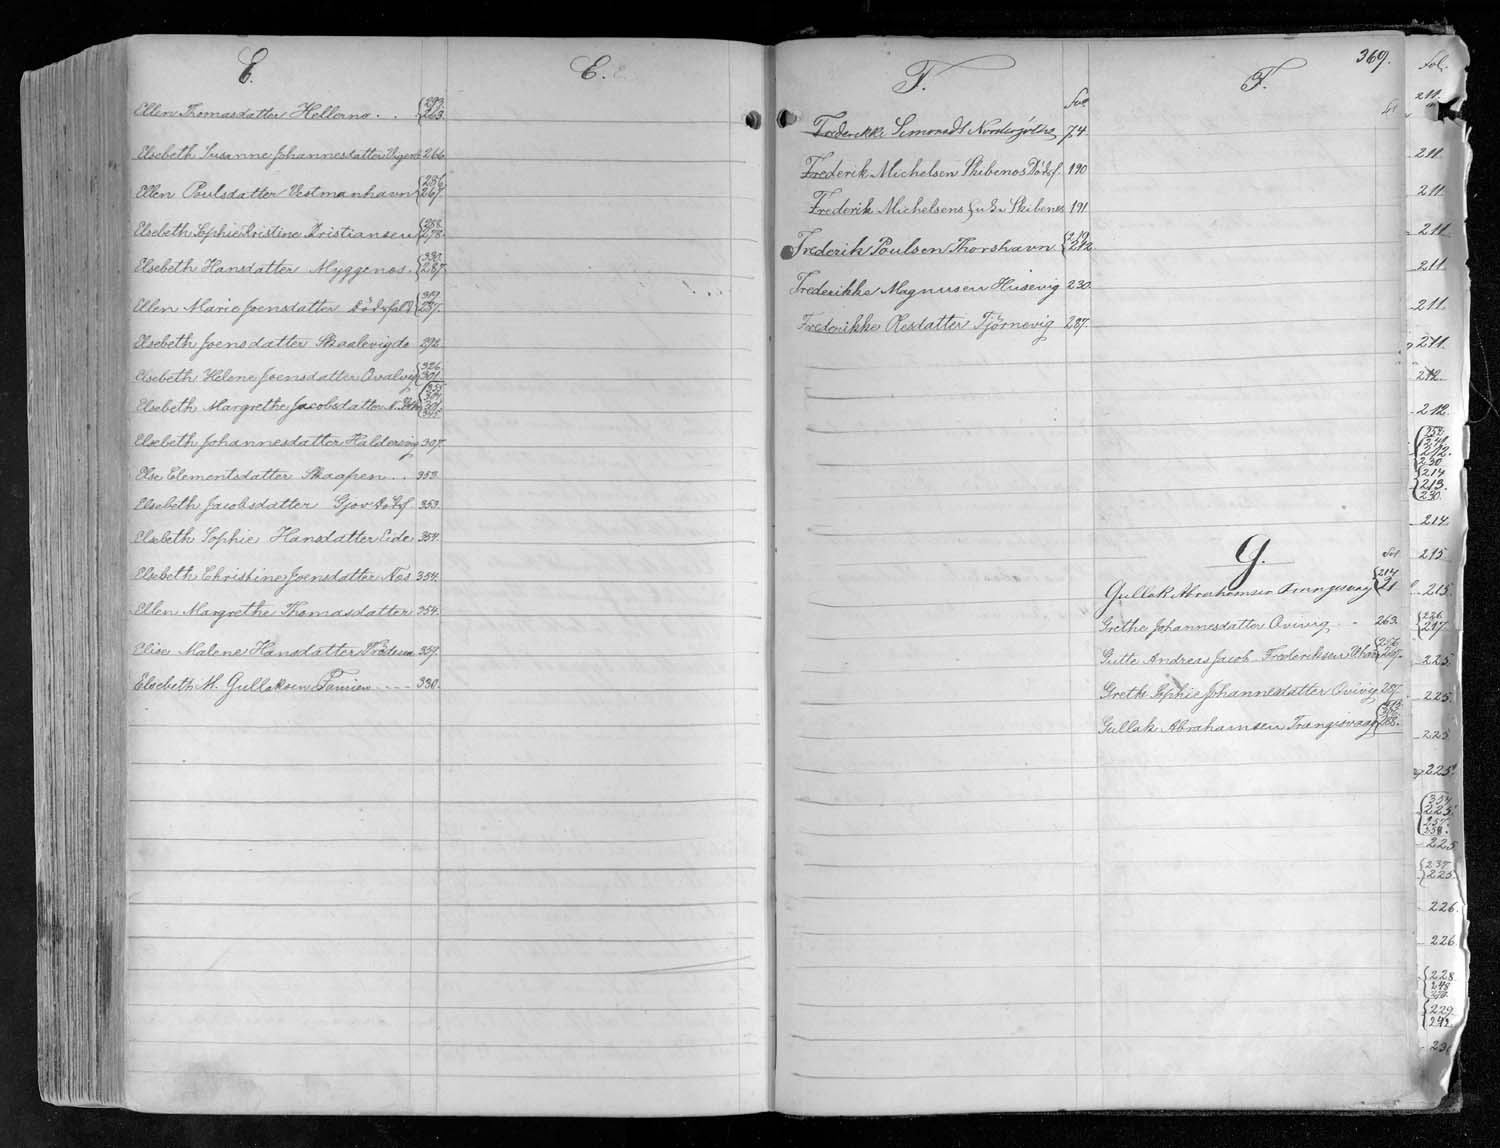 E.
Ellen Thomasdatter Hellerne . . 263
Elsebeth Susanne Johannesdatter 266
Ellen Poulsdatter Vestmanhavn 286 267
Elsebeth Sophie Kristine Kristiansen 278
Elsebeth Hansdatter Myggenæs . 287
Ellen Marie Joensdatter 287.
Elsebeth Joensdatter Skaalevig do 292
Elsebeth Helene Joensdatter Qvalvig 326 301
Elsebeth Margrethe Jacobsdatter
Elsebeth Johannesdatter Haldersvig 307.
Else Clementsdatter Skaapen . . 353
Elsebeth Jacobsdatter Gjov Dödsf 353
Elsebeth Sophie Hansdatter Eide 354.
Elsebeth Christine Joensdatter Nes 354.
Ellen Margrethe Thomasdatter 354.
Elise Malene Hansdatter 359.
Elsebeth M. Gullaksen Famien - - - - 330.
E.
F.
Fol
Frederikke Simonsdt 74.
Frederik Michelsen Skibenæs Dödsf. 190
Frederik Michelsens Skibenæs 191
Frederik Poulsen Thorshavn 212
Frederikke Magnusen Husevig 230
Frederikke Olesdatter Tjörnevig 287.
369.
F.
G.
Fol
Gullak Abrahamsen Trangisvaag 214 21
Grethe Johannesdatter Qvivig - 263.
Gutte Andreas Jacob Frederiksen 256 267.
Grethe Sophie Johannesdatter Qvivig 287.
Gullak Abrahamsen Trangisvaag 288.
Fol.
211.
211
211
211
211
211.
211.
212.
212.
252
241
212.
230
214
213.
230.
214
215
215.
226
217
225
225.
225
225.
354
225
257.
358.
225
237
225.
226
226
228
248
229
242